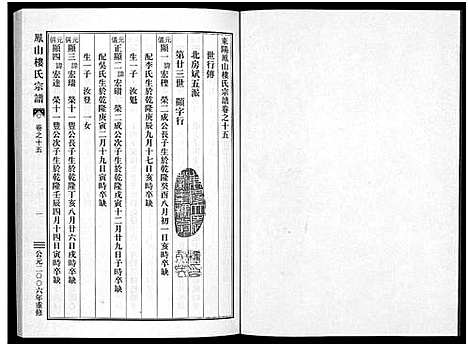 東陽鳳山樓氏宗譜卷之十五
世行傳
北房斌五派
第廿三世 顯字行
元儀 顯一 諱宏穩 榮二成公長子生於乾隆癸酉八月初一日亥時卒缺
配李氏生於乾隆庚辰九月十七日亥時卒缺
生一子 汝魁
元儀 正顯二 諱宏礀 榮二成公次子生於乾隆戊寅十二月廿九日子時卒缺
配吳氏生於乾隆庚寅二月十九日寅時卒缺
生一子 汝登 一女
元儀 顯三 諱宏瑞 榮十一豐公長子生於乾隆丁亥八月廿六日亥時卒缺
元炳 顯四 諱宏達 榮十一豐公次子生於乾隆壬辰四月十四日寅時卒缺
鳳山樓氏宗譜 卷之十五 一 公元二〇〇六年重修